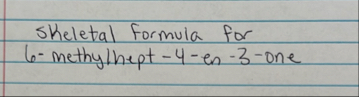 skeletal formula for
6-methylhept-4-en-3-one